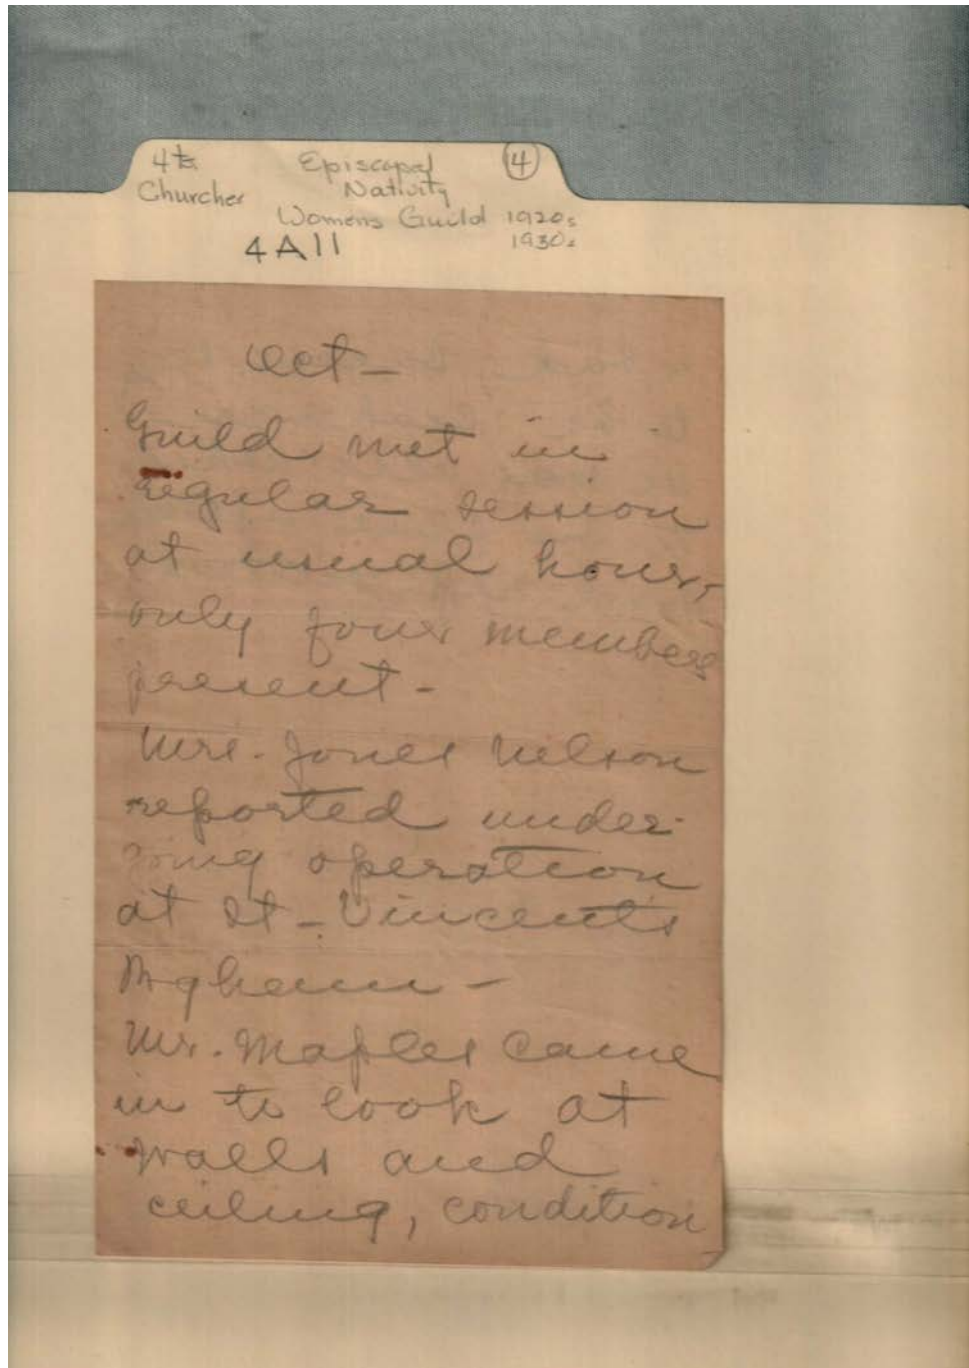 4ts Episcopal 4
Churches Nativity
Womens Guild 1920s
4A11 1930s
Oct-
Guild met in
regular session
at usual hour,
only four members
present -
Mrs. Jones Nelson
reported under-
going operation
at St - Vincents
B'gham -
Mr. Maples came
in to look at
walls and
ceiling, condition